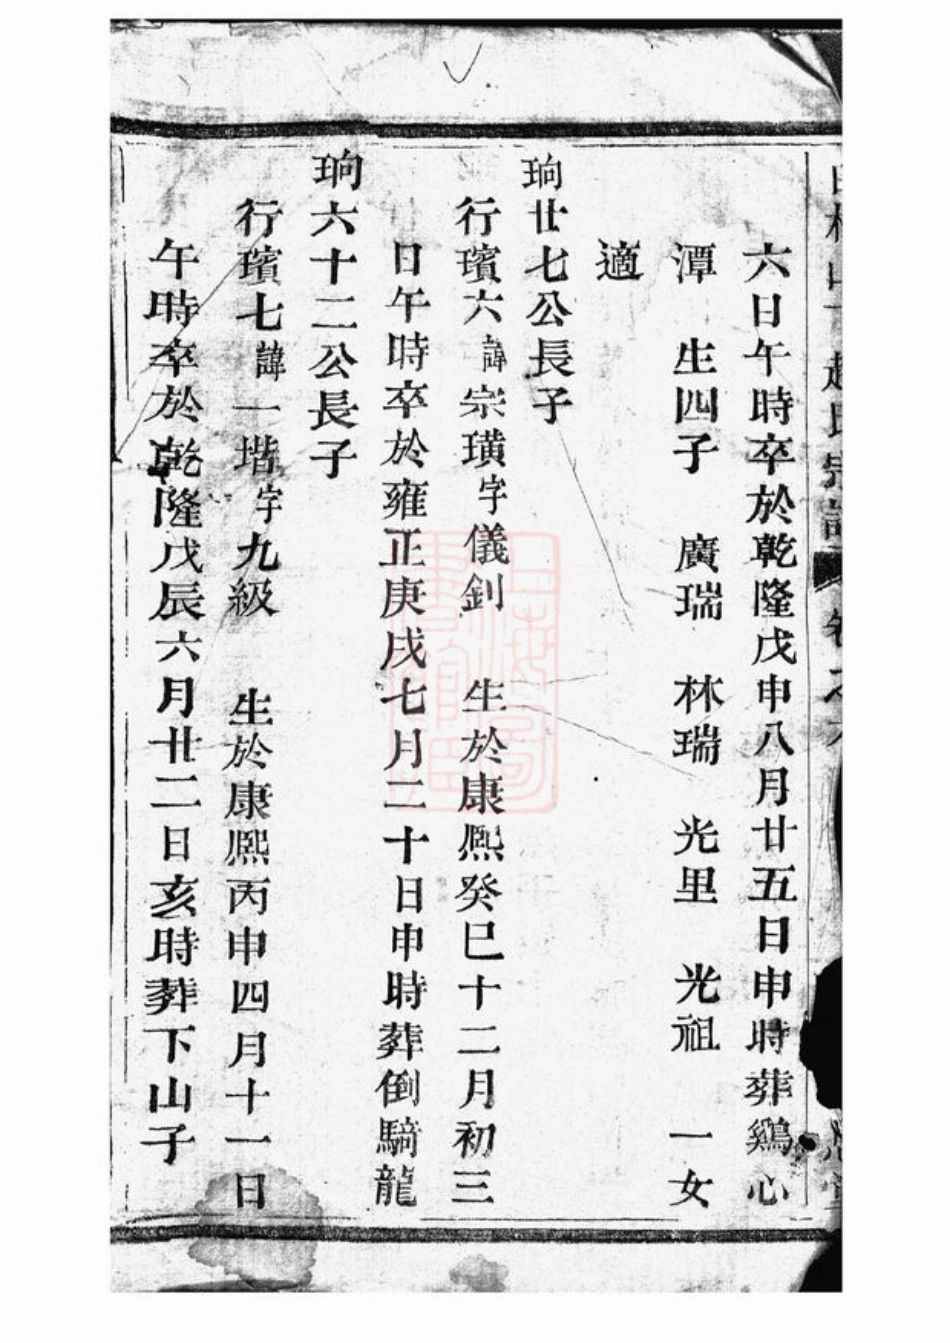 趙氏宗譜 卷之六
六日午時卒於乾隆戊申八月廿五日申時葬鷄心
潭 生四子 廣瑞 林瑞 光里 光祖 一女
適
珦廿七公長子
行璸六諱宗璜字儀釗 生於康熙癸巳十二月初三
日午時卒於雍正庚戌七月二十日申時葬倒騎龍
珦六十二公長子
行璸七諱一堦字九級 生於康熙丙申四月十一日
午時卒於乾隆戊辰六月廿二日亥時葬下山子